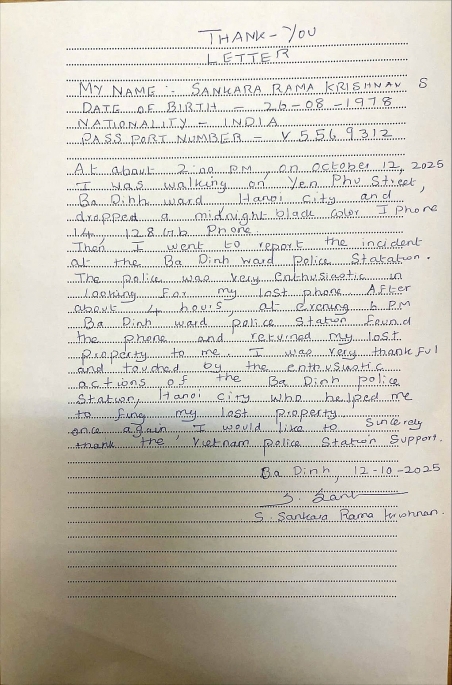 THANK-YOU
LETTER
MY NAME :- SANKARA RAMA KRISHNAN S
DATE OF BIRTH - 26-08-1978
NATIONALITY - INDIA
PASS PORT NUMBER - V5569312
At about 2:00 PM, on October 12, 2025
I was walking on Yen Phu Street,
Ba Dinh ward, Hanoi City and
dropped a midnight black color I Phone
14, 128 Gb Phone.
Then I went to report the incident
at the Ba Dinh ward Police Statation.
The police was very enthusiastic in
looking For my lost phone AFter
about 4 hours, at evening 6 PM
Ba Dinh ward police Station Found
the phone and returned my lost
Property to me. I was very thankful
and touched by the enthusiastic
actions of the Ba Dinh police
Station, Hanoi city who helped me
to fing my lost property
once again, I would like to Sincerely
thank the Vietnam police Station Support.
Ba Dinh, 12-10-2025
S. Sankara Rama Krishnan.